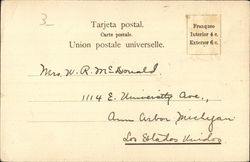 3
Tarjeta postal.
Carte postale.
Union postale universelle.
Franqueo
Interior 4 c.
Exterior 6 c.
Mrs. W. R. McDonald.
1114 E. University Ave.,
Ann Arbor Michigan
Los Estados Unidos